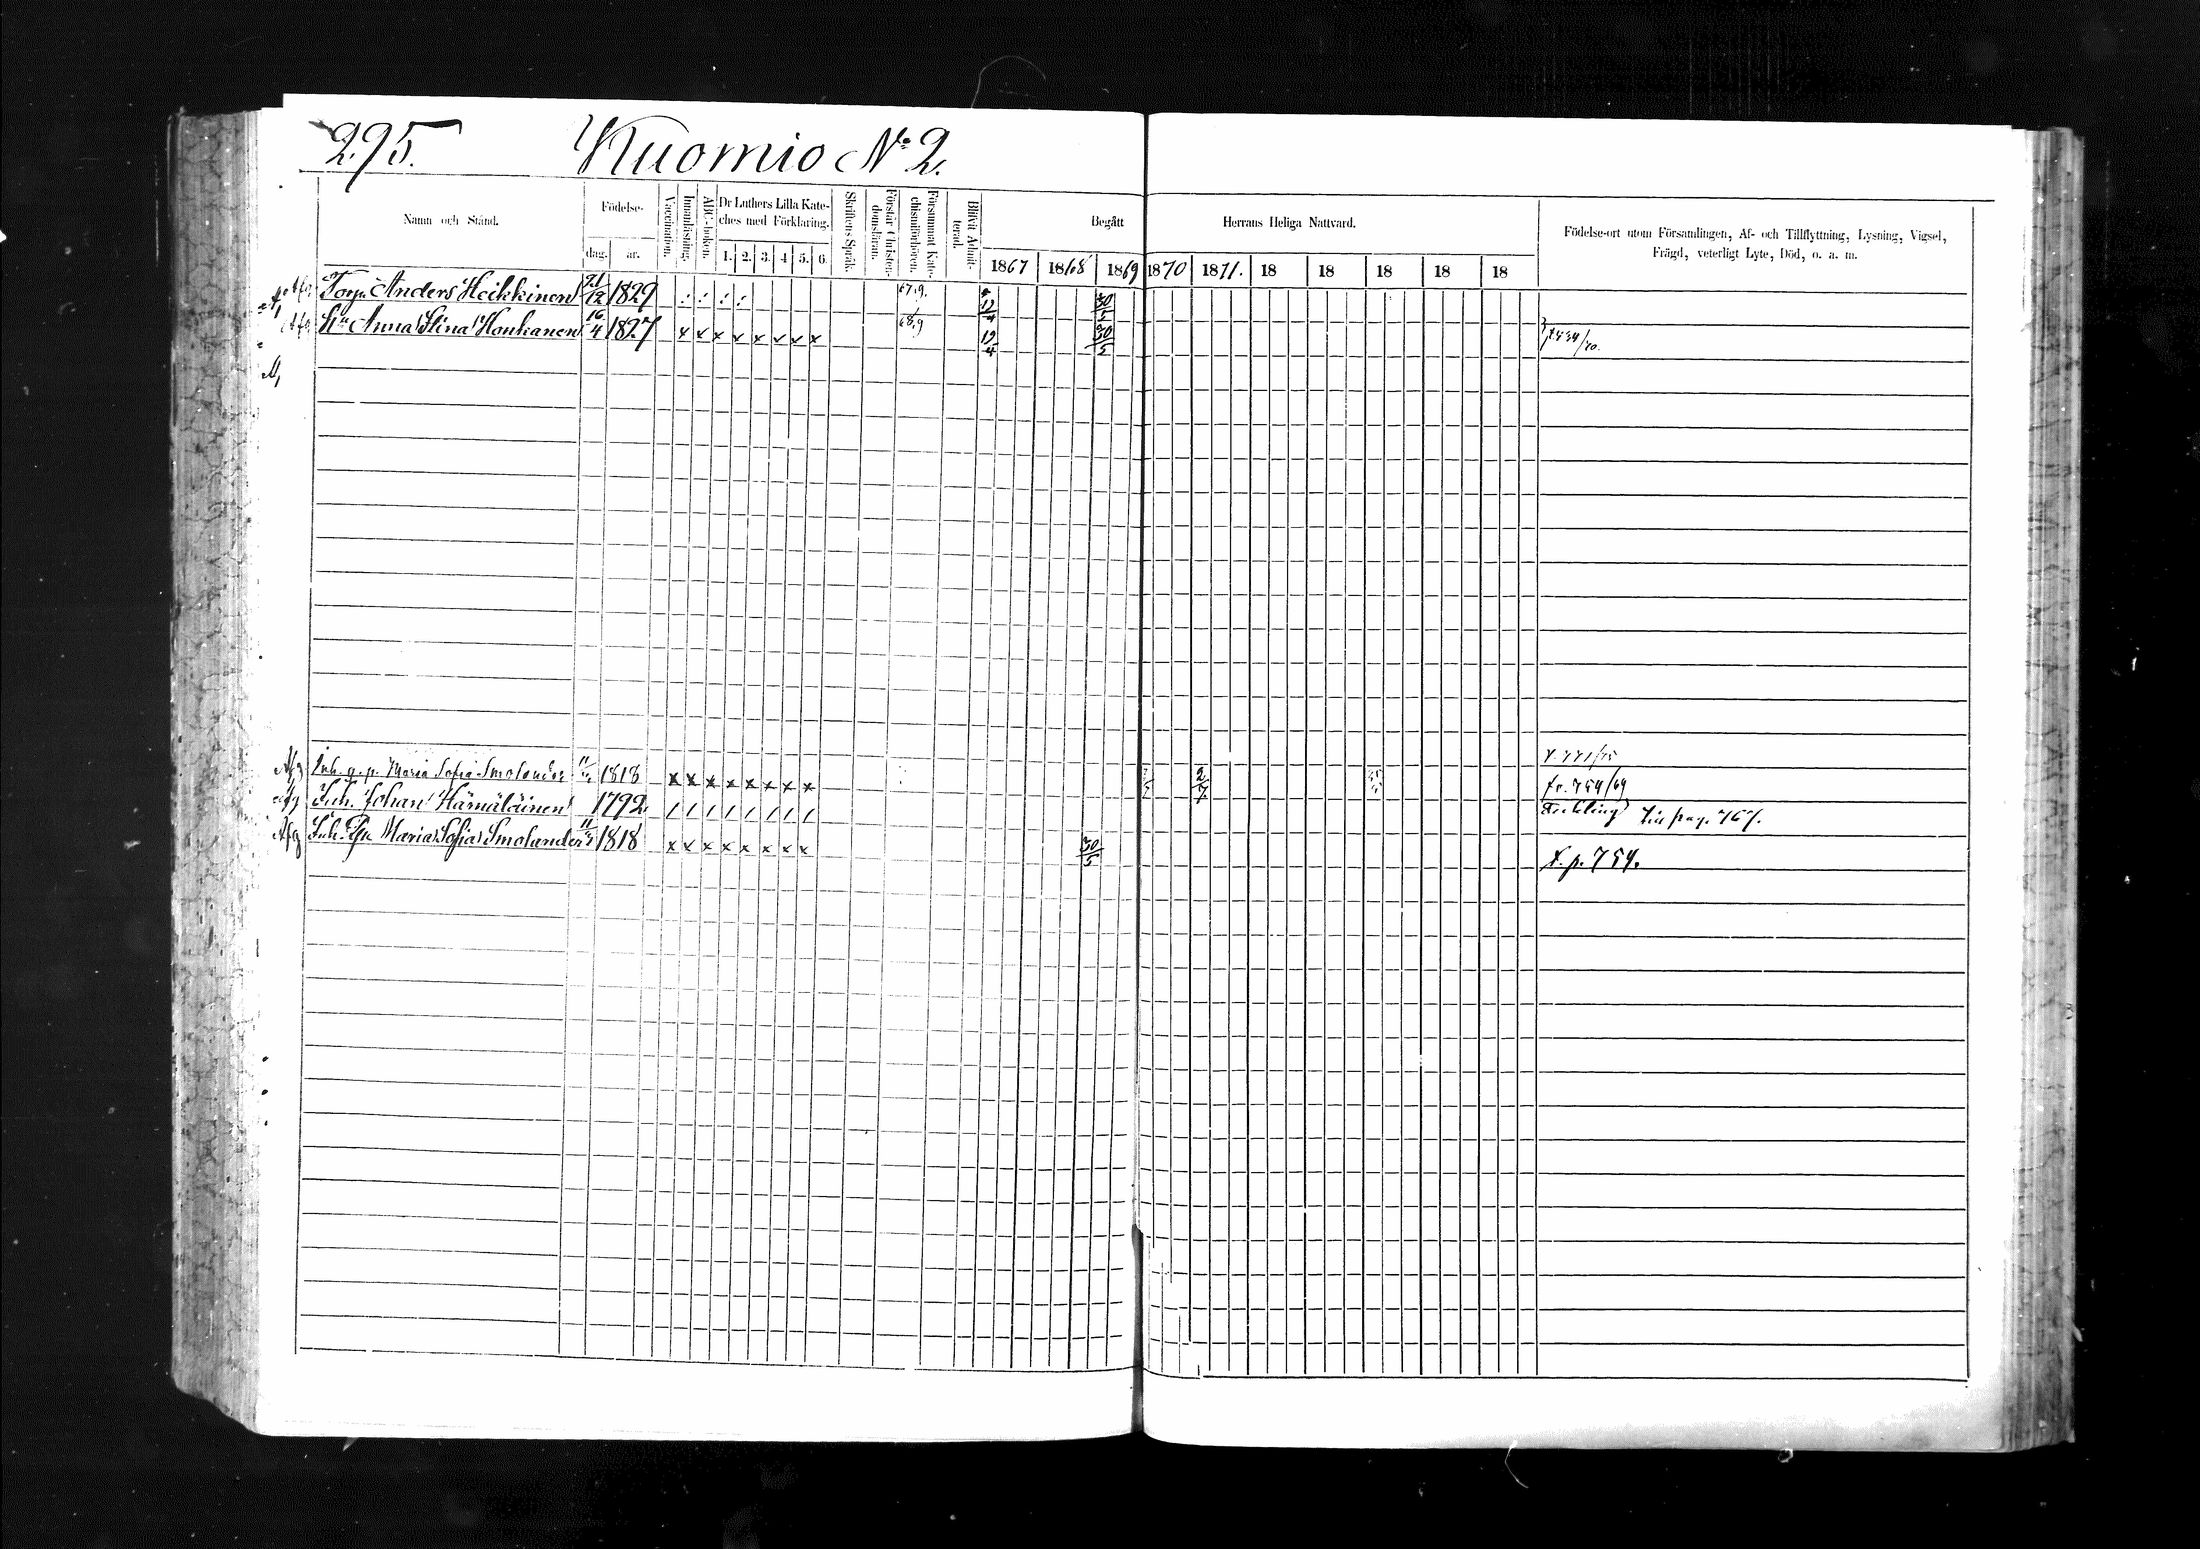 295. Kuomio No 2.
Namn och Stånd.
Födelse-
dag. år.
Vaccination.
Innanläsning.
ABC-boken.
Dr Luthers Lilla Kate-
ches med Förklaring.
1. 2. 3. 4 5. 6.
Skriftens Språk.
Förstår Christen-
domsläran.
Försummat Kate-
chismiförhören.
Blifvit Admit-
terad.
Begått Herrans Heliga Nattvard.
1867 1868 1869 1870 1871. 18 18 18 18 18
Födelse-ort utom Församlingen, Af- och Tillflyttning, Lysning, Vigsel,
Frägd, veterligt Lyte, Död, o. a. m.
Anders Heikkinen 21/12 1829 67.9. 12/4 30/5
Hu Anna Stina Honkanen 16/4 1827 x x x x x x x x 68.9 19/4 30/5
Inh. Maria Sofia Smolander 11/ 1818 x x x x x x x x 2/7
fr. 754/69
Afg Inh. Johan Hämäläinen 1792 / / / / / / / / till pag. 767.
Afg Inh. Maria Sofia Smolander 11/ 1818 x x x x x x x x 30/5
t. p. 754.